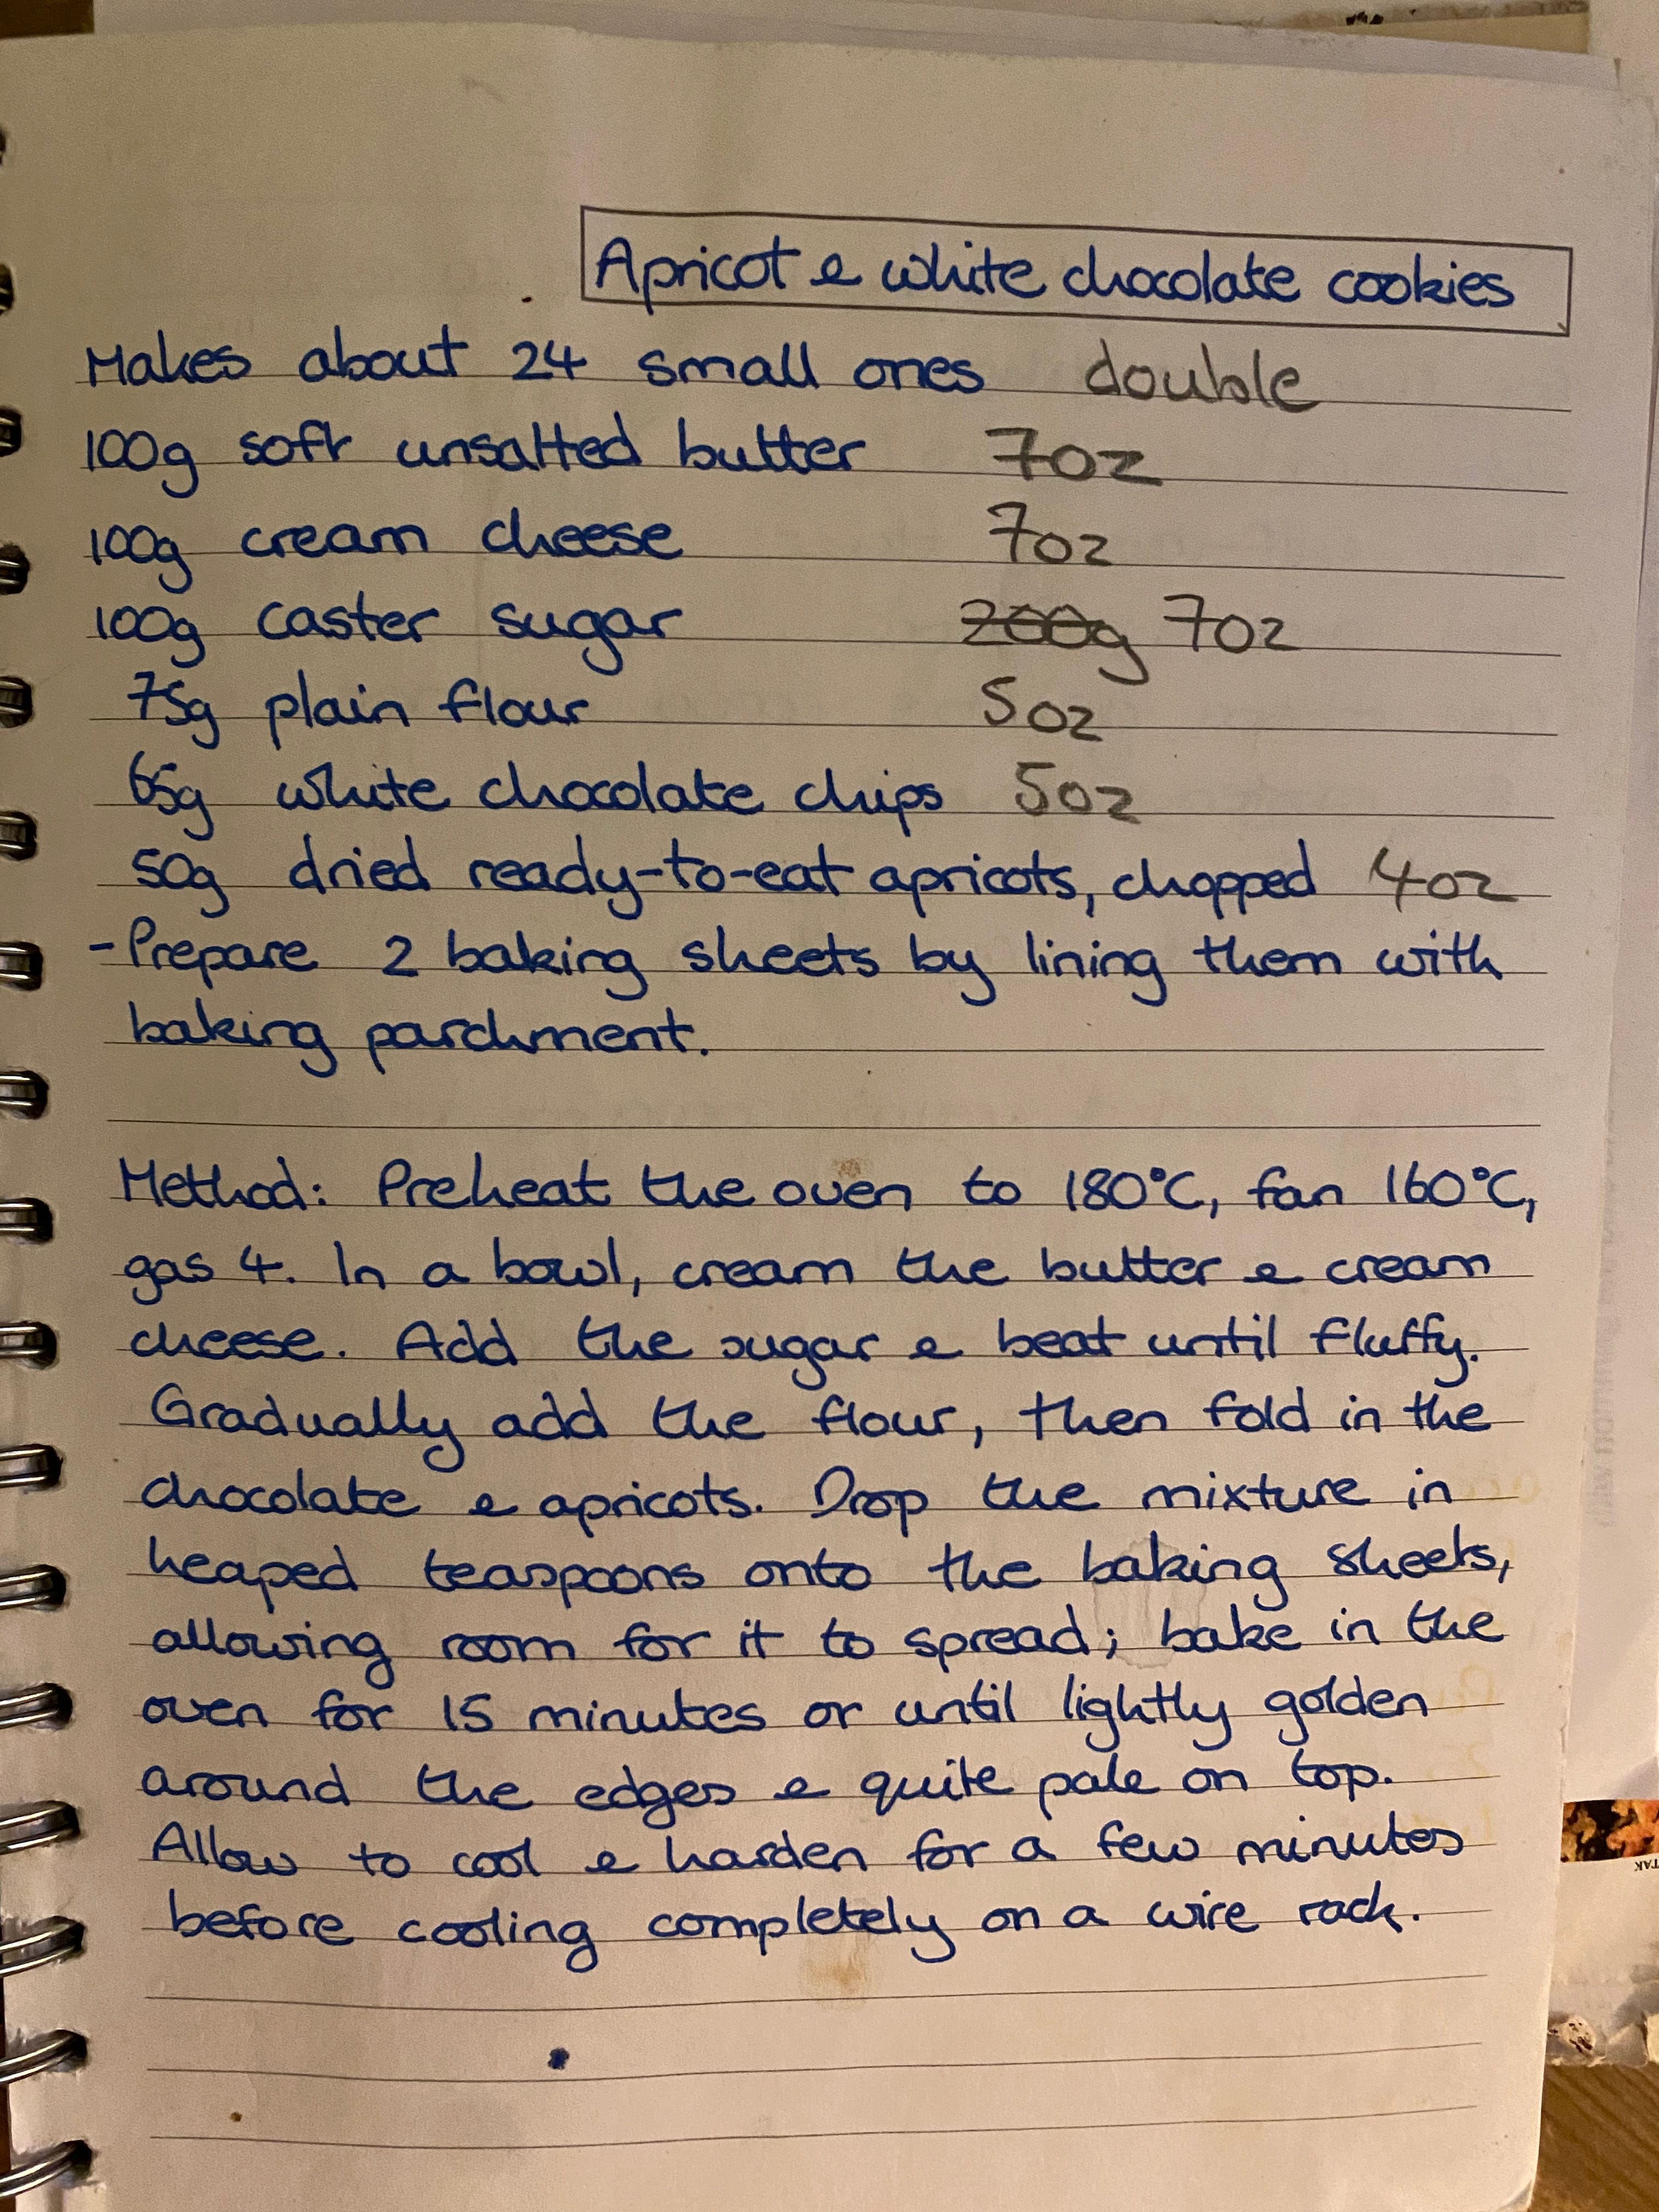 Apricot & white chocolate cookies
Makes about 24 small ones double
100g soft unsalted butter 7oz
100g cream cheese 7oz
100g caster sugar 200g 7oz
75g plain flour 5oz
65g white chocolate chips 5oz
50g dried ready-to-eat apricots, chopped 4oz
-Prepare 2 baking sheets by lining them with
baking parchment.
Method: Preheat the oven to 180°C, fan 160°C,
gas 4. In a bowl, cream the butter & cream
cheese. Add the sugar & beat until fluffy.
Gradually add the flour, then fold in the
chocolate & apricots. Drop the mixture in
heaped teaspoons onto the baking sheets,
allowing room for it to spread; bake in the
oven for 15 minutes or until lightly golden
around the edges & quite pale on top.
Allow to cool & harden for a few minutes
before cooling completely on a wire rack.